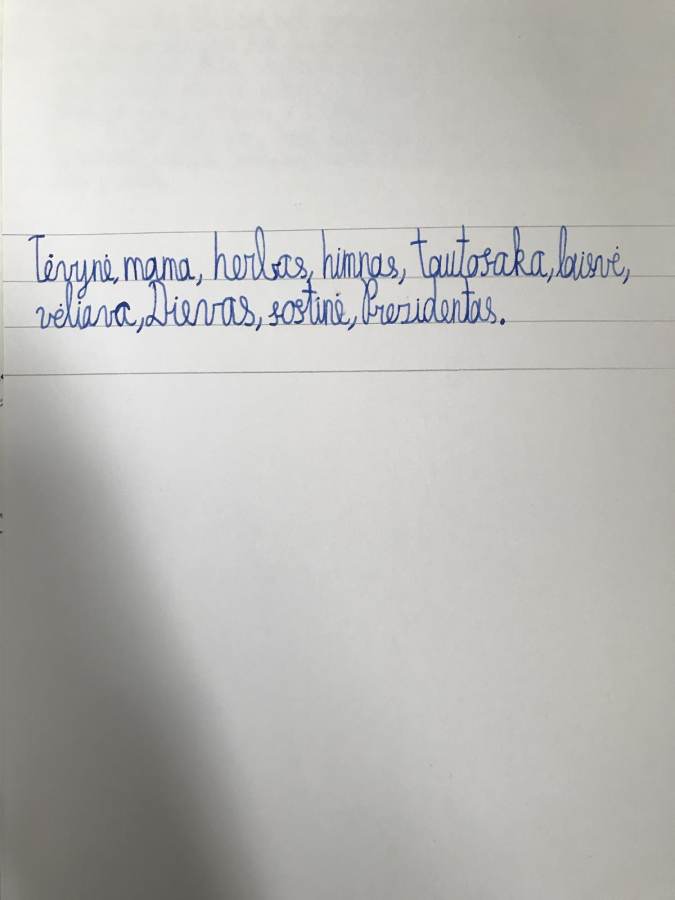 Tėvynė, mama, herbas, himnas, tautosaka, laisvė,
vėliava, Dievas, sostinė, Prezidentas.